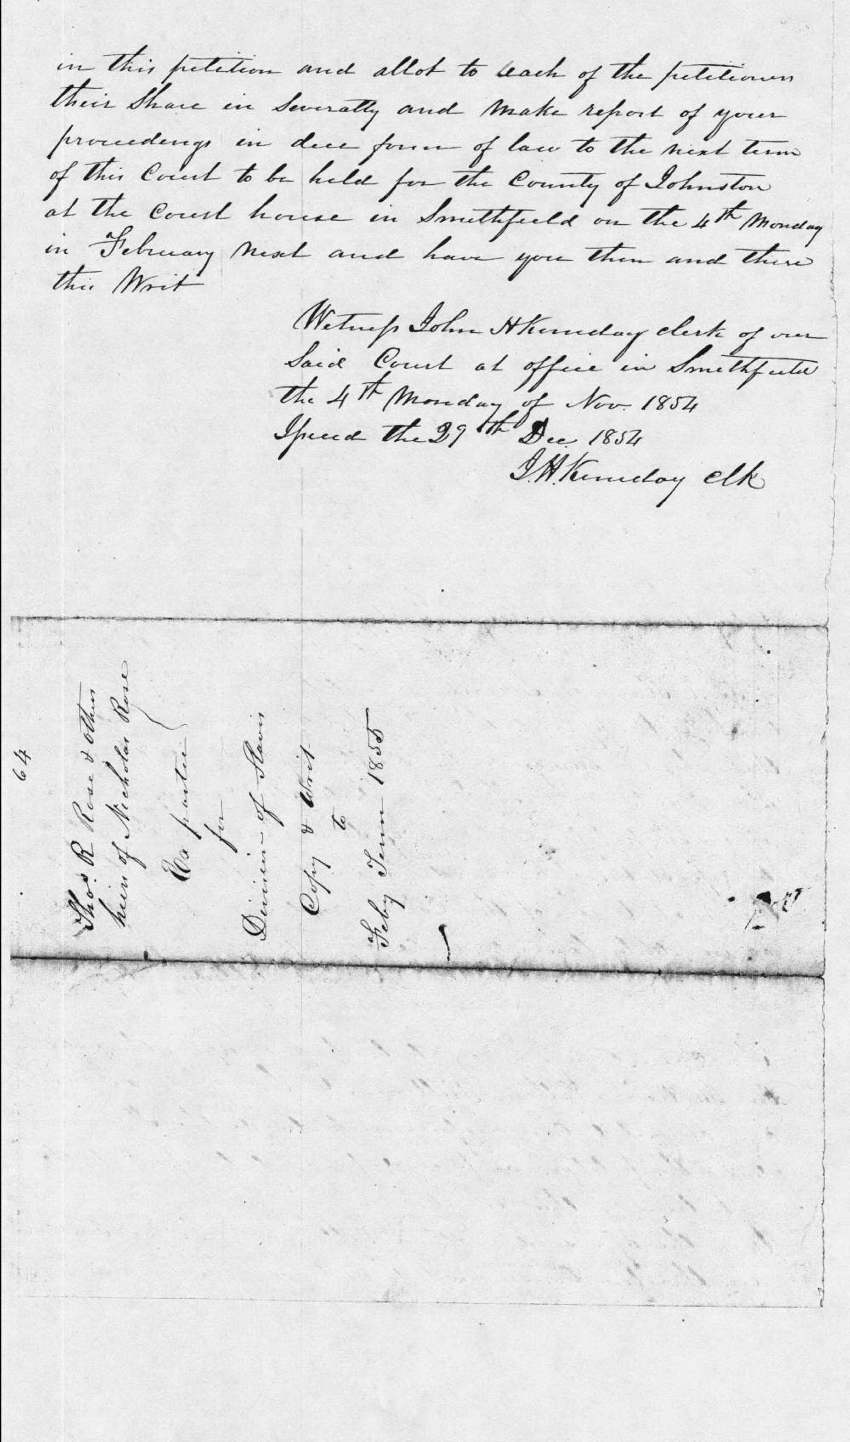 in this petition and allot to each of the petitioners
their Share in Severalty and Make report of your
proceedings in due form of law to the next term
of this Court to be held for the County of Johnston
at the Court house in Smithfield on the 4th Monday
in February Next and have you then and there
this Writ
Witness John H Keneday clerk of our
Said Court at office in Smithfield
the 4th Monday of Nov. 1854
Issued the 29th Dec. 1854
J.H. Keneday Clk
64
Thos. R Rose & others
heirs of Nicholas Rose
Ex partee
for
Division of Slaves
Copy & Writ
to
Feby Term 1855